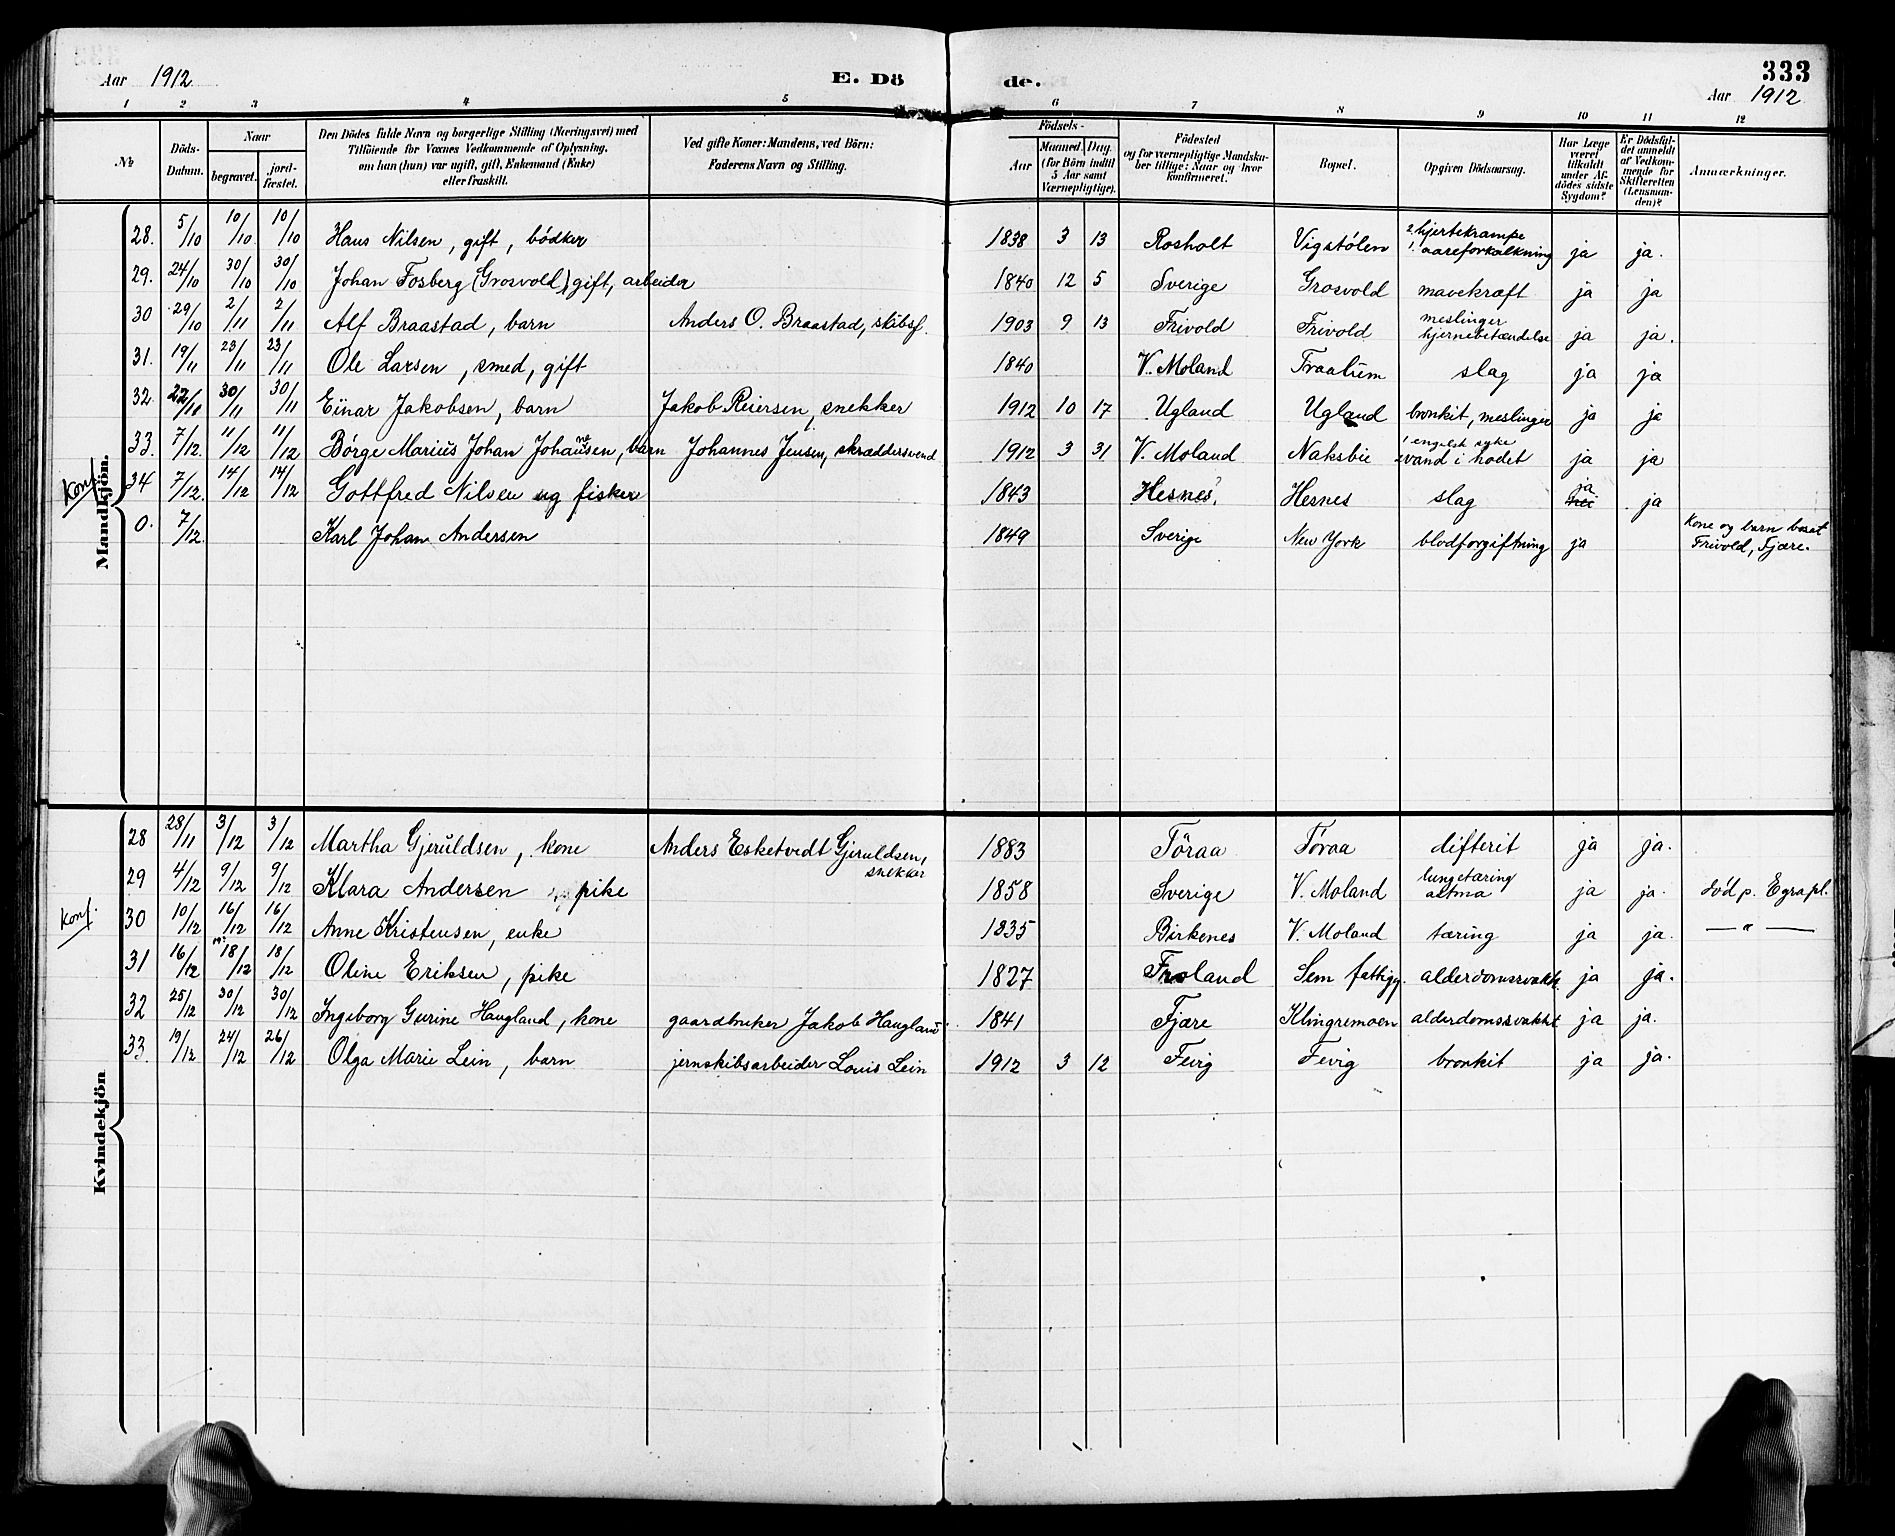 333
Aar 1912 E. Dö de. Aar 1912
1 2 3 4 5 6 7 8 9 10 11 12
No
Döds-Datum.
Naar
begravet. jord-fæstet.
Den Dödes fulde Navn og borgerlige Stilling (Næringsvei) med
Tilföiende for Voxnes Vedkommende af Oplysning,
om han (hun) var ugift, gift, Enkemand (Enke)
eller fraskilt.
Ved gifte Koner: Mandens, ved Börn:
Faderens Navn og Stilling.
Födsels-
Aar Maaned. Dag.
(for Börn indtil
5 Aar samt
Værnepligtige).
Födested
og for værnepligtige Mandska-
ber tillige: Naar og hvor
konfirmeret.
Bopæl.
Opgiven Dödsaarsag.
Har Læge
været
tilkaldt
under Af-
dödes sidste
Sygdom?
Er Dödsfal-
det anmeldt
af Vedkom-
mende for
Skifteretten
(Lensman-
den)?
Anmærkninger.
Mandkjön.
28. 5/10 10/10 10/10 Hans Nilsen, gift, bödker 1838 3 13 Rosholt Vigstølen 2. hjertekrampe 1. aareforkalkning ja ja.
29. 24/10 30/10 30/10 Johan Fosberg (Grosvold) gift, arbeider 1840 12 5 Sverige Grosvold mavekræft ja ja
30 29/10 2/11 2/11 Alf Braastad, barn Anders O. Braastad, skibsf. 1903 9 13 Frivold Frivold meslinger hjernebetændelse ja ja.
31. 19/11 23/11 23/11 Ole Larsen, smed, gift 1840 V. Moland Fraalum slag ja ja
32. 22/11 30/11 30/11 Einar Jakobsen, barn Jakob Reiersen, snekker 1912 10 17 Ugland Ugland bronkit, meslinger ja ja
33. 7/12. 11/12 11/12 Börge Marius Johan Johannesen, barn Johannes Jensen, skræddersvend 1912 3 31 V. Moland Naksbie 1 engelsk syke 2 vand i hodet ja ja
Konf. 34 7/12. 14/12 14/12 Gottfred Nilsen ug fisker 1843 Hesnes, Hesnes slag ja nei ja
0. 7/12. Karl Johan Andersen 1849 Sverige New York blodforgiftning ja Kone og barn bosat Frivold, Fjære.
Kvindekjön
28 28/11 3/12 3/12 Martha Gjeruldsen, kone Anders Esketvedt Gjeruldsen, snekker 1883 Töraa Töraa difterit ja ja.
29 4/12 9/12 9/12 Klara Andersen pike 1858 Sverige V. Moland lungetæring astma ja ja. död p. Egrapl.
Konf. 30 10/12 16/12 16/12 Anne Kristensen, enke 1835 Birkenes V. Moland tæring ja ja. — " —
31 16/12 18/12 18/12 Oline Eriksen, pike 1827 Froland Sem fattigg. alderdomssvakh. ja ja.
32 25/12 30/12 30/12 Ingeborg Gurine Haugland, kone gaardbruker Jakob Haugland 1841 Fjære Klingremoen alderdomssvakht ja ja.
33. 19/12 24/12 26/12 Olga Marie Lein, barn jernskibsarbeider Louis Lein 1912 3 12 Fevig Fevig bronkit ja ja.